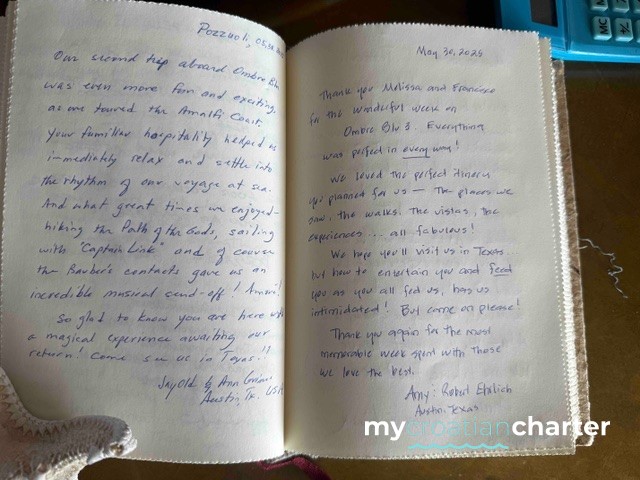 Pozzuoli, 05.30.
Our second trip aboard Ombre Blu
was even more fun and exciting,
as we toured the Amalfi Coast.
Your familiar hospitality helped us
immediately relax and settle into
the rhythm of our voyage at sea.
And what great times we enjoyed -
hiking the Path of the Gods, sailing
with "Captain Link" and of course
the Barber's contacts gave us an
incredible musical send-off!
So glad to know you are here with
a magical experience awaiting our
return! Come see us in Texas!!
& Ann
Austin, Tx. USA
May 30, 2025
Thank you Melissa and Francisco
for the wonderful week on
Ombre Blu 3. Everything
was perfect in every way!
We loved the perfect itinerary
you planned for us — The places we
saw, the walks. The vistas, the
experiences ... all fabulous!
We hope you'll visit us in Texas...
but how to entertain you and feed
you as you all fed us, has us
intimidated! But come on please!
Thank you again for the most
memorable week spent with those
we love the best.
Amy & Robert Ehrlich
Austin, Texas
mycroatiancharter